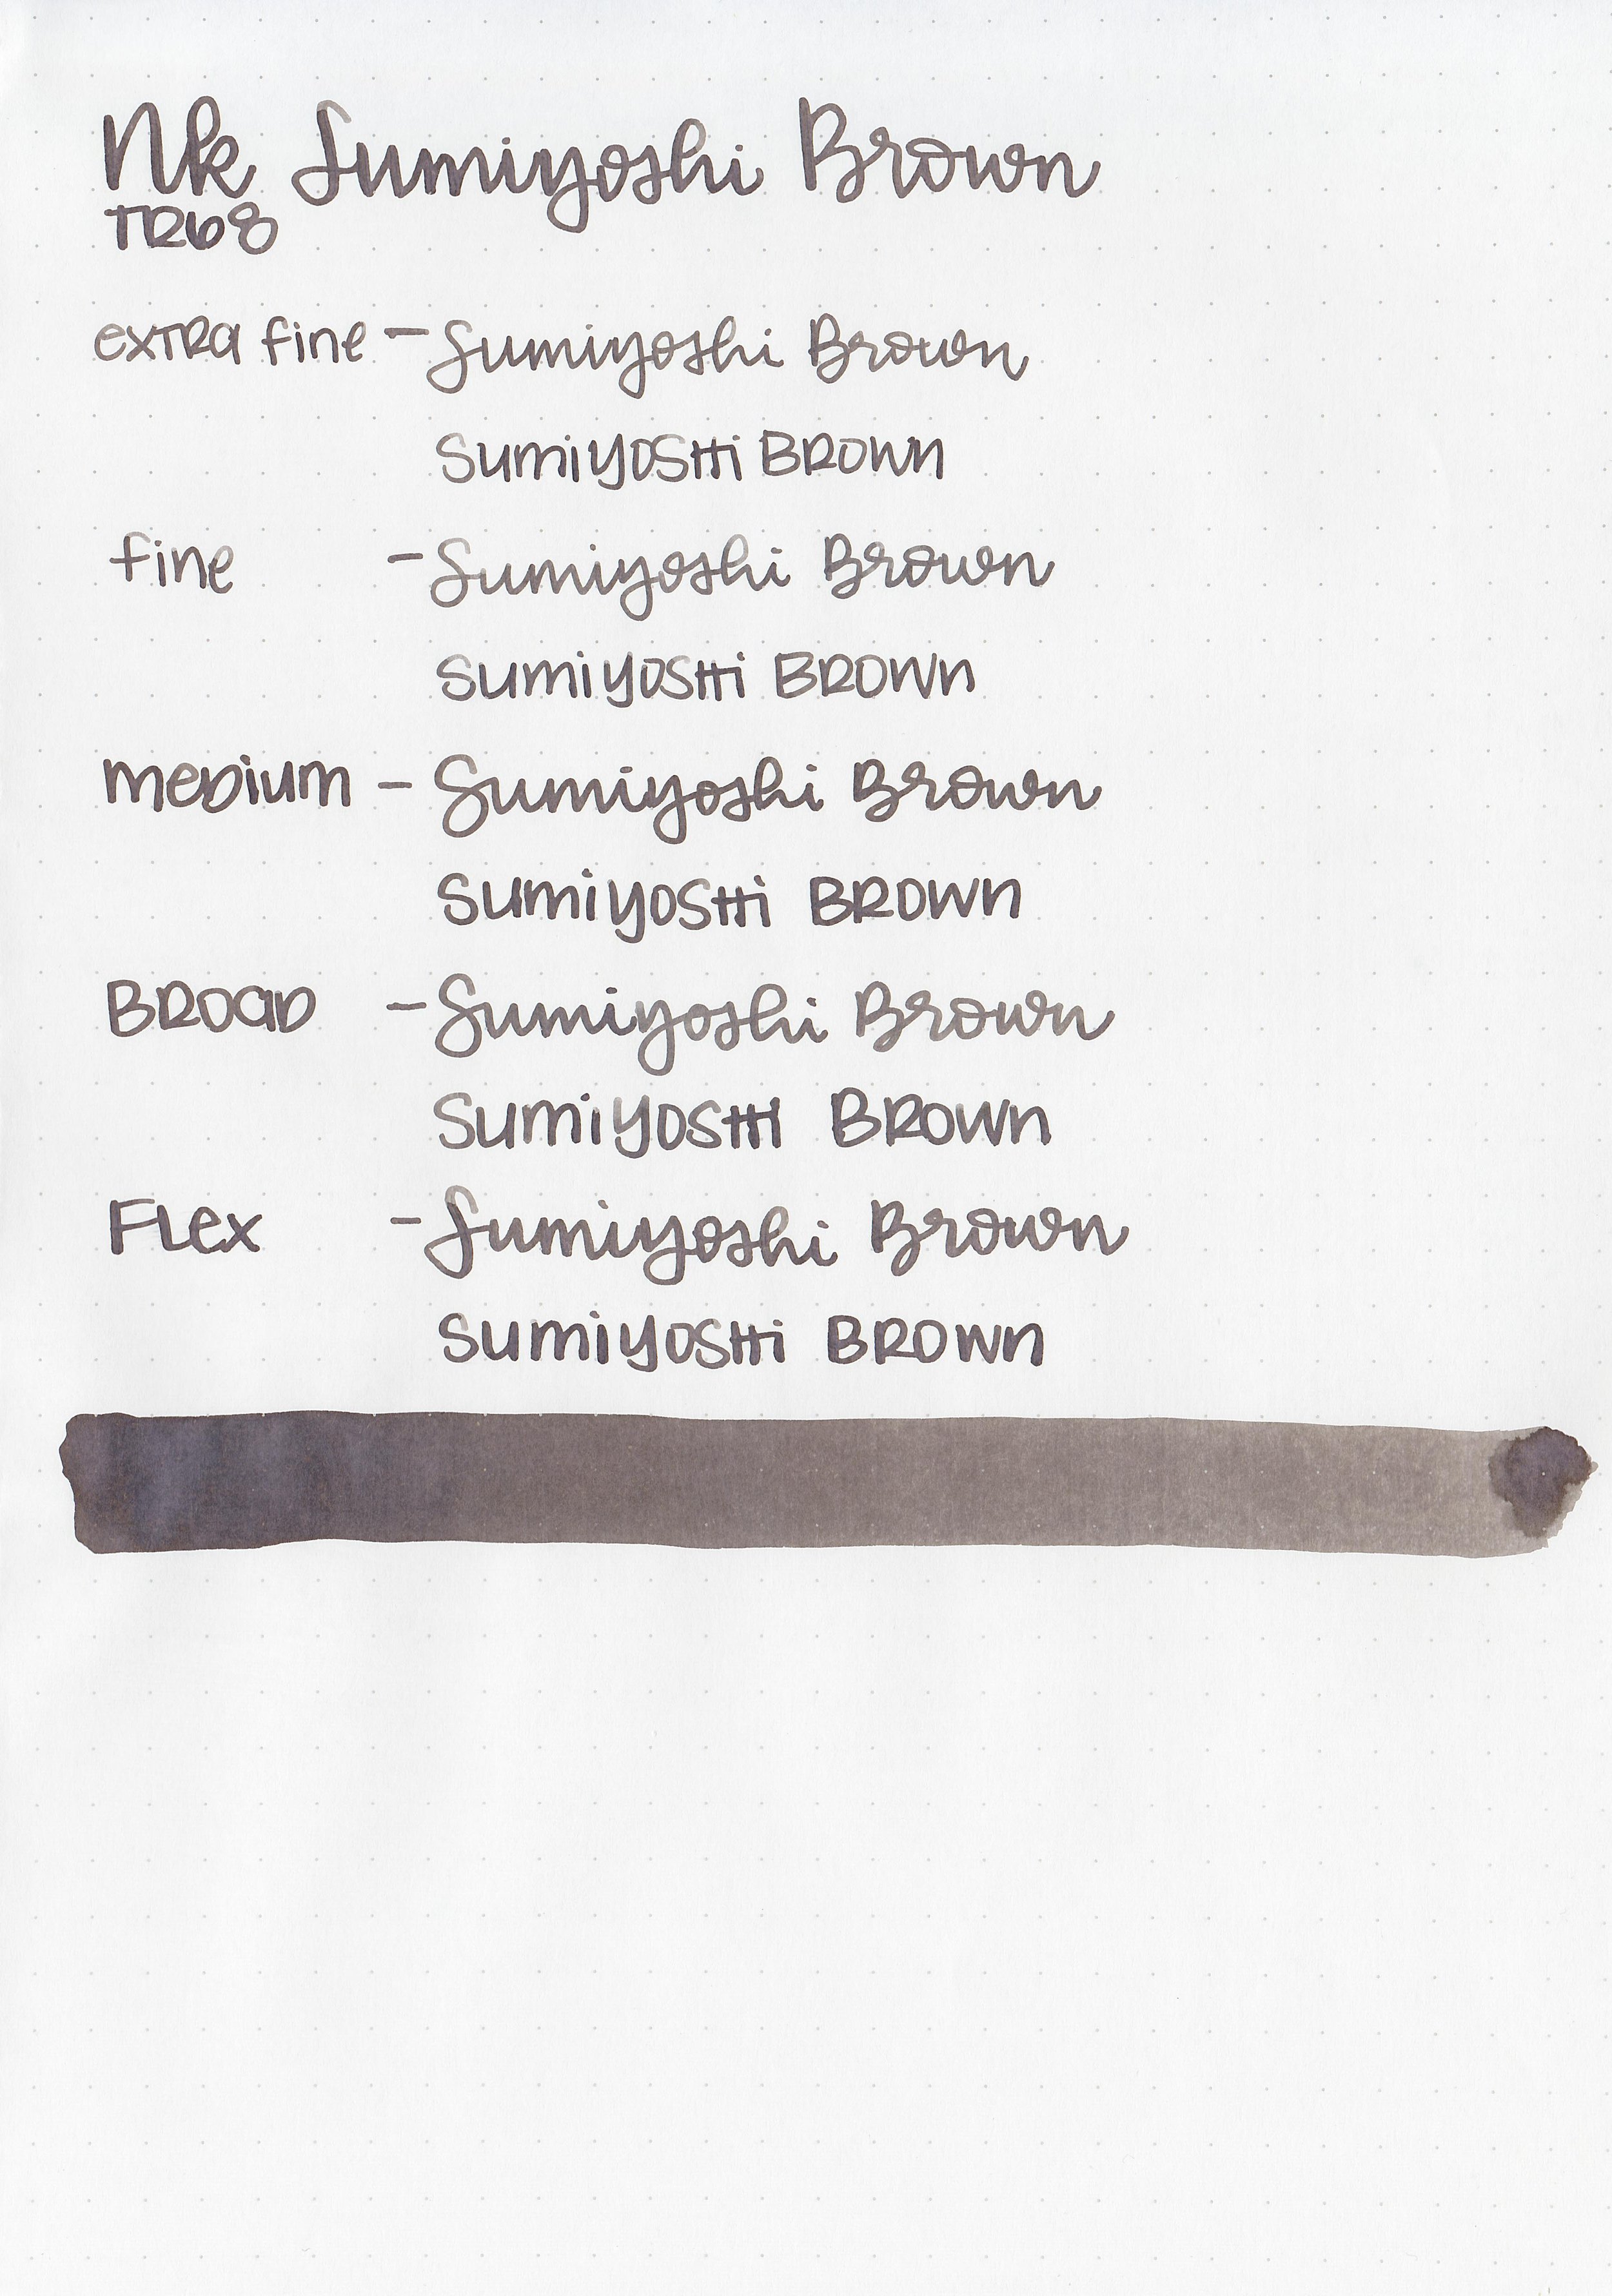 Nk Sumiyoshi Brown
TR68
extra fine - Sumiyoshi Brown
Sumiyoshi Brown
fine - Sumiyoshi Brown
Sumiyoshi Brown
medium - Sumiyoshi Brown
Sumiyoshi Brown
Broad - Sumiyoshi Brown
Sumiyoshi Brown
Flex - Sumiyoshi Brown
Sumiyoshi Brown